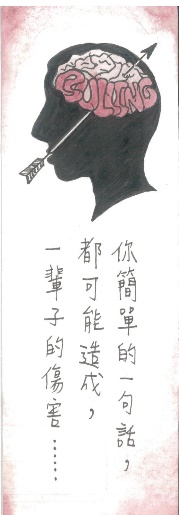 BULLING
你簡單的一句話，
都可能造成，
一輩子的傷害……